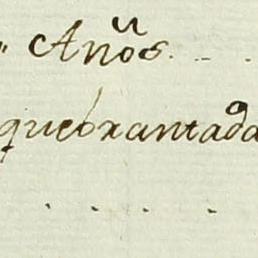 " Años. . .
quebrantada
. . . .